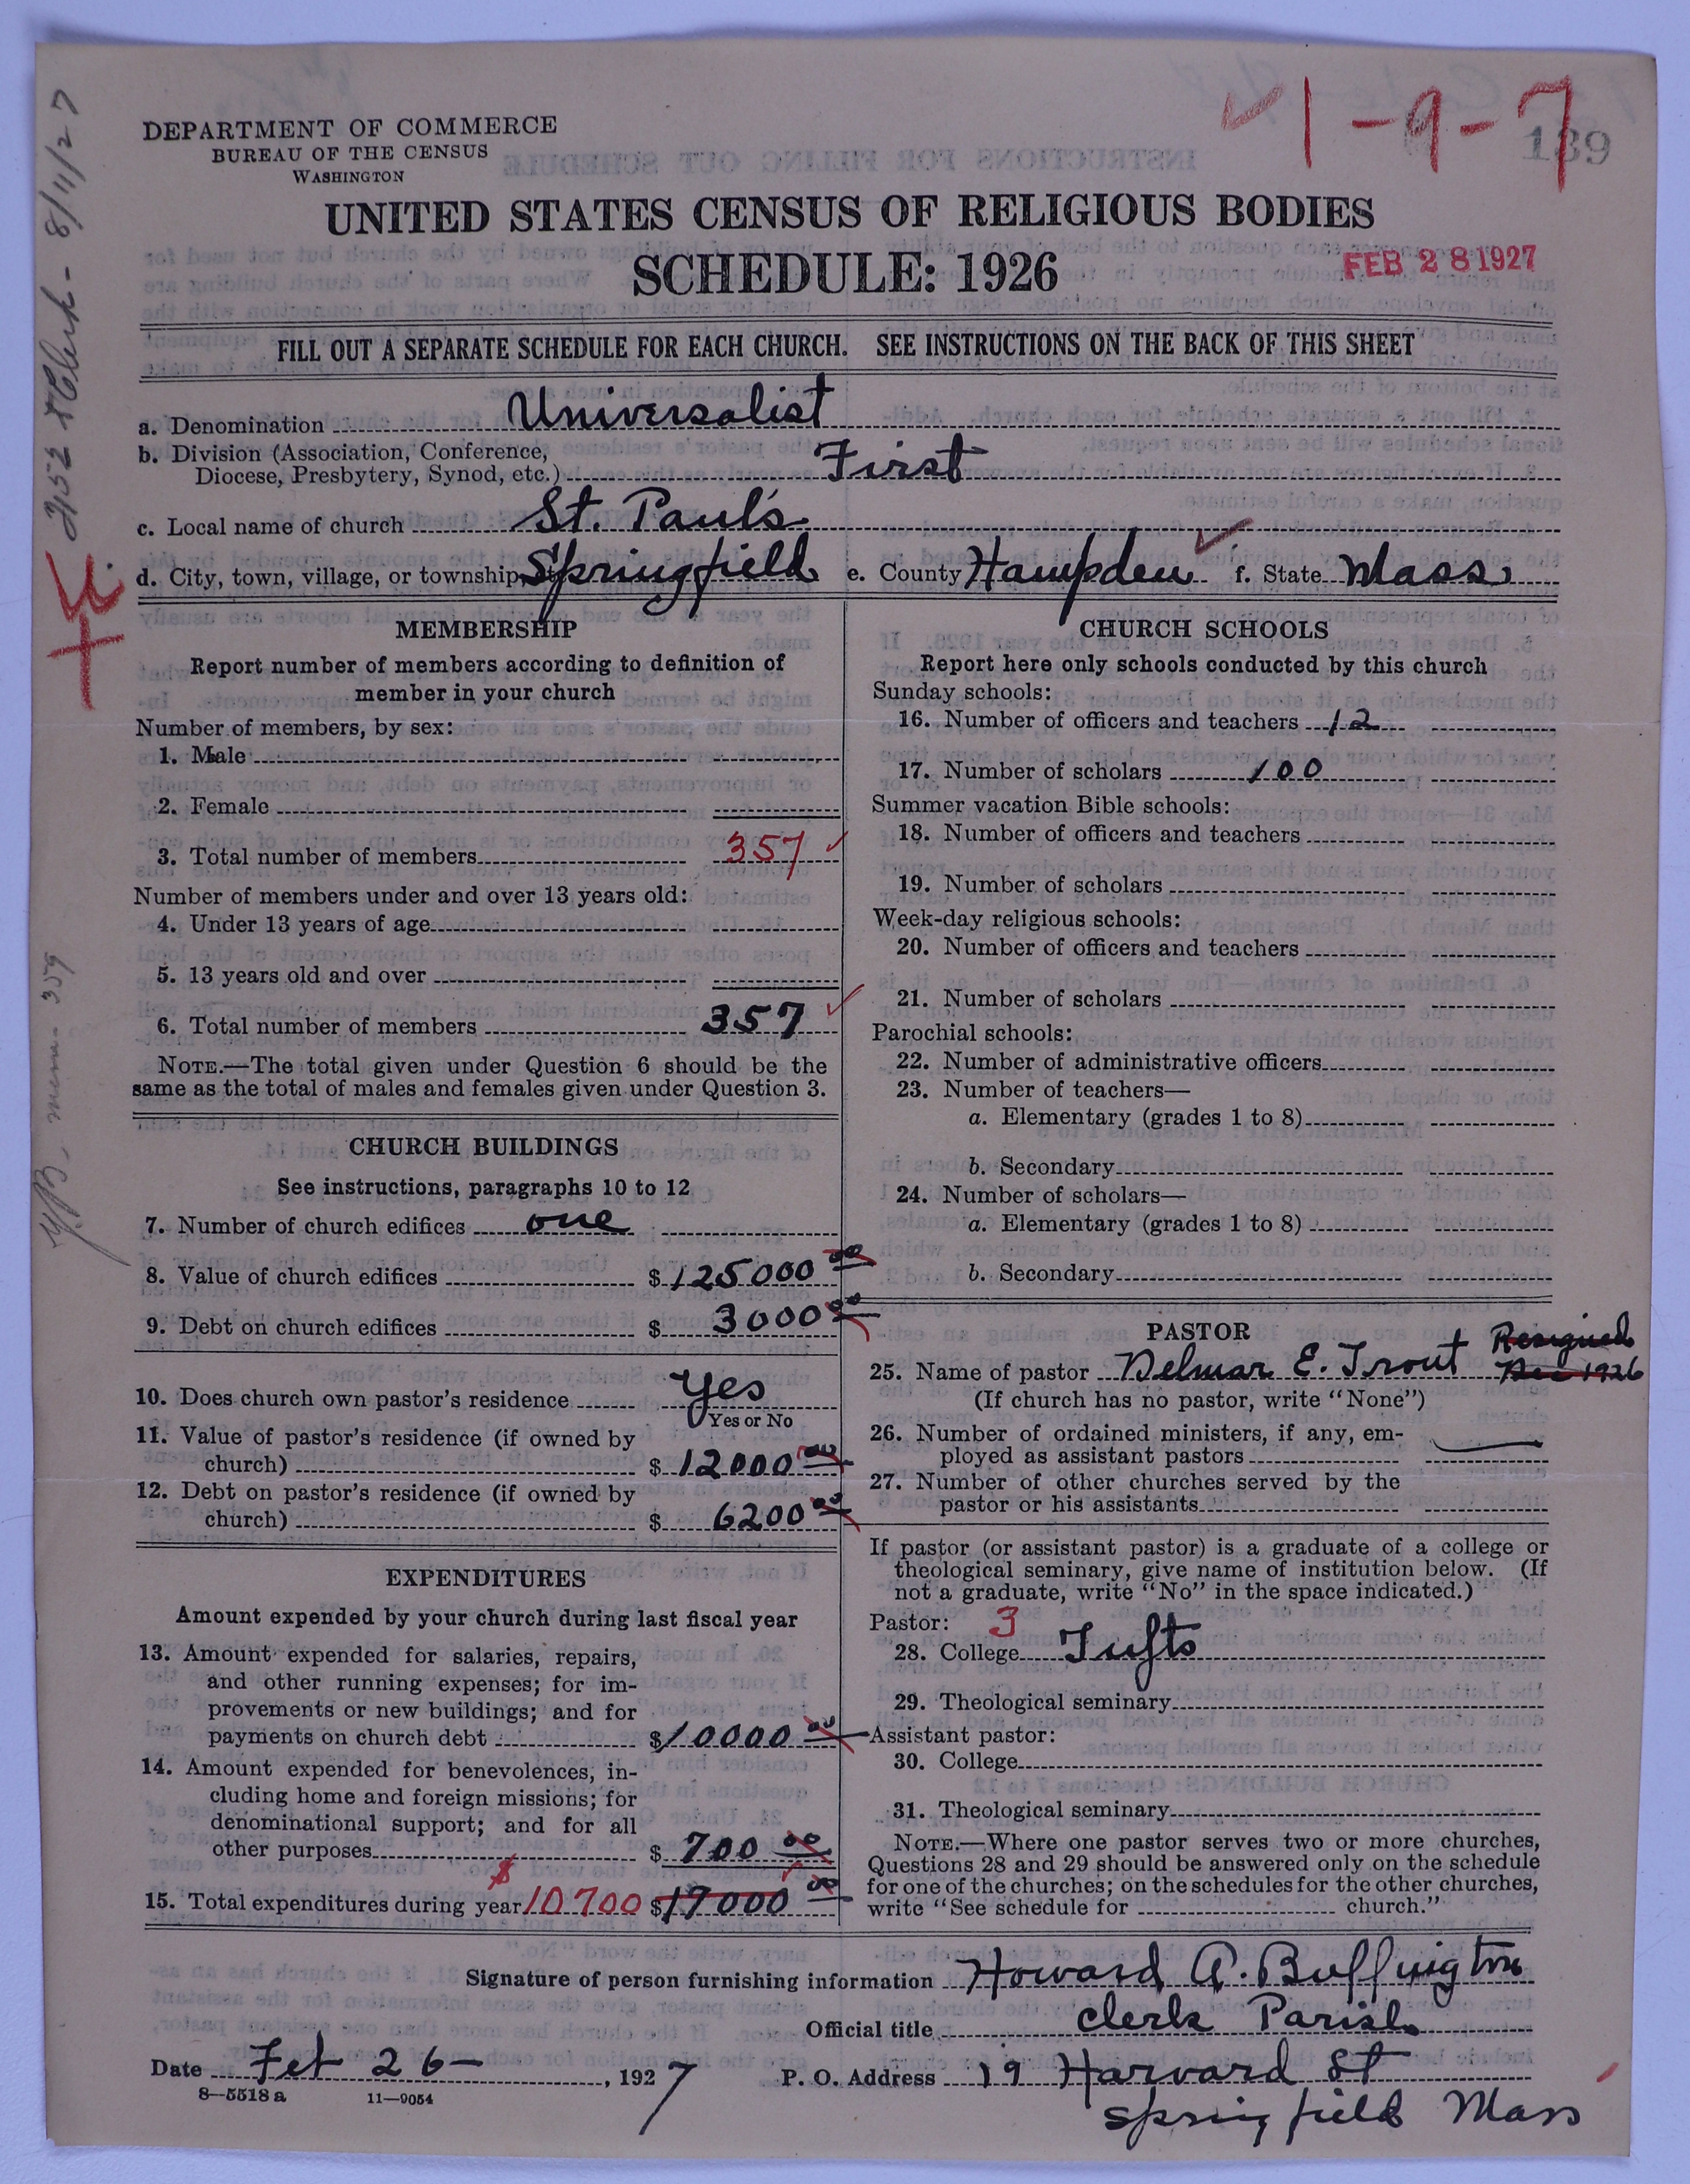 1-9-7
139
DEPARTMENT OF COMMERCE
BUREAU OF THE CENSUS
WASHINGTON
UNITED STATES CENSUS OF RELIGIOUS BODIES
SCHEDULE: 1926
FEB 28 1927
FILL OUT A SEPARATE SCHEDULE FOR EACH CHURCH. SEE INSTRUCTIONS ON THE BACK OF THIS SHEET
a. Denomination Universalist
b. Division (Association, Conference,
Diocese, Presbytery, Synod, etc.) First
c. Local name of church St. Paul's
d. City, town, village, or township Springfield e. County Hampden f. State Mass.
MEMBERSHIP
Report number of members according to definition of
member in your church
Number of members, by sex:
1. Male
2. Female
3. Total number of members 357
Number of members under and over 13 years old:
4. Under 13 years of age
5. 13 years old and over
6. Total number of members 357
NOTE.—The total given under Question 6 should be the
same as the total of males and females given under Question 3.
CHURCH BUILDINGS
See instructions, paragraphs 10 to 12
7. Number of church edifices one
8. Value of church edifices $ 125000 00
9. Debt on church edifices $ 3000 00
10. Does church own pastor's residence Yes
Yes or No
11. Value of pastor's residence (if owned by
church) $ 12000 00
12. Debt on pastor's residence (if owned by
church) $ 6200 00
EXPENDITURES
Amount expended by your church during last fiscal year
13. Amount expended for salaries, repairs,
and other running expenses; for im-
provements or new buildings; and for
payments on church debt $ 10000 00
14. Amount expended for benevolences, in-
cluding home and foreign missions; for
denominational support; and for all
other purposes $ 700 00
15. Total expenditures during year $ 10700 $ 17000 00
CHURCH SCHOOLS
Report here only schools conducted by this church
Sunday schools:
16. Number of officers and teachers 12
17. Number of scholars 100
Summer vacation Bible schools:
18. Number of officers and teachers
19. Number of scholars
Week-day religious schools:
20. Number of officers and teachers
21. Number of scholars
Parochial schools:
22. Number of administrative officers
23. Number of teachers—
a. Elementary (grades 1 to 8)
b. Secondary
24. Number of scholars—
a. Elementary (grades 1 to 8)
b. Secondary
PASTOR
25. Name of pastor Delmar E. Trout Resigned
Dec 1926
(If church has no pastor, write "None")
26. Number of ordained ministers, if any, em-
ployed as assistant pastors
27. Number of other churches served by the
pastor or his assistants
If pastor (or assistant pastor) is a graduate of a college or
theological seminary, give name of institution below. (If
not a graduate, write "No" in the space indicated.)
Pastor: 3
28. College Tufts
29. Theological seminary
Assistant pastor:
30. College
31. Theological seminary
NOTE.—Where one pastor serves two or more churches,
Questions 28 and 29 should be answered only on the schedule
for one of the churches; on the schedules for the other churches,
write "See schedule for church."
Signature of person furnishing information Howard A. Buffington
Official title Clerk Parish
Date Feb 26 — , 1927 P. O. Address 19 Harvard St
Springfield Mass
8—5518 a 11—9054
8/11/27
mem. 359